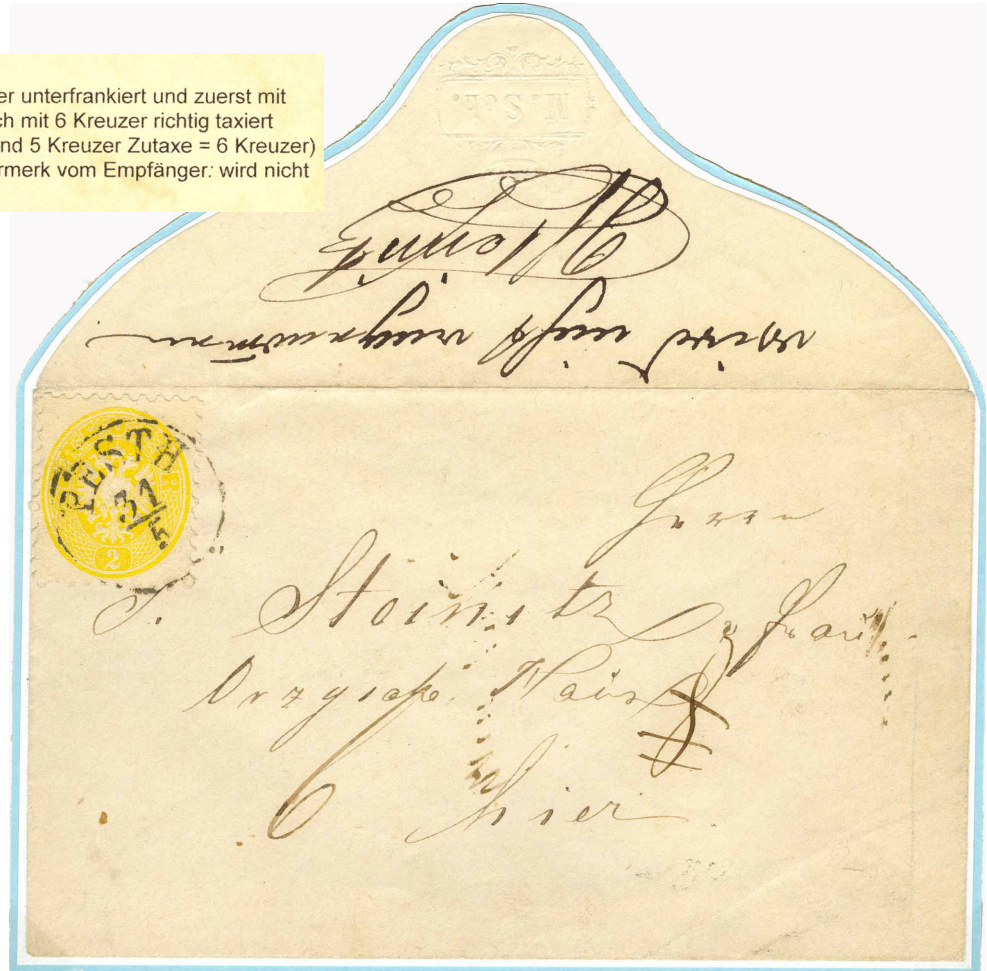 er unterfrankiert und zuerst mit
ch mit 6 Kreuzer richtig taxiert
nd 5 Kreuzer Zutaxe = 6 Kreuzer)
rmerk vom Empfänger: wird nicht
H. Sch.
wird nicht angenommen
PESTH
31/5
2
Herrn
S. Steinitz & Frau
Orzysche Haus
6 hier